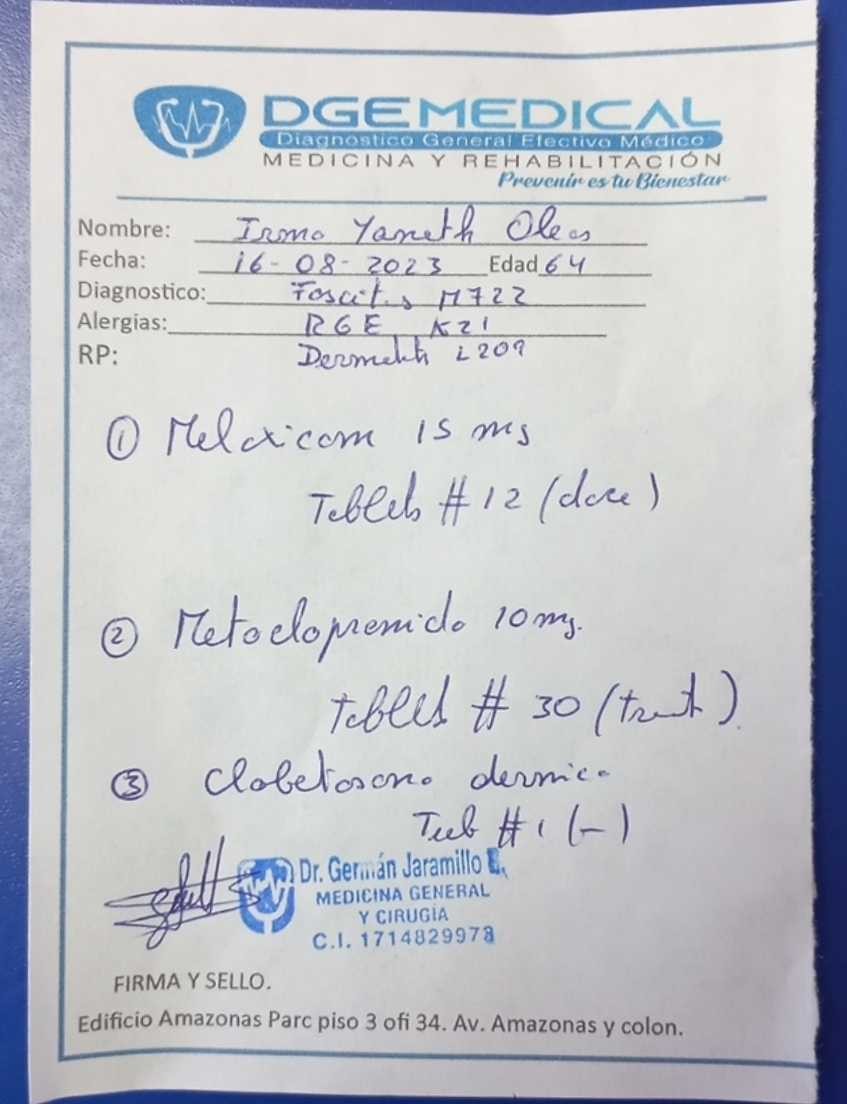 DGEMEDICAL
Diagnostico General Efectivo Médico
MEDICINA Y REHABILITACIÓN
Prevenir es tu Bienestar
Nombre: Irma Yaneth Oleas
Fecha: 16-08-2023 Edad 64
Diagnostico: Fascitis M722
Alergias: RGE K21
RP: Dermatitis L209
① Meloxicam 15 mg
Tabletas #12 (doce)
② Metoclopramida 10 mg.
Tabletas # 30 (treinta)
③ Clobetasona dermica
Tubo #1 (–)
Dr. Germán Jaramillo E.
MEDICINA GENERAL
Y CIRUGÍA
C.I. 1714829978
FIRMA Y SELLO.
Edificio Amazonas Parc piso 3 ofi 34. Av. Amazonas y colon.